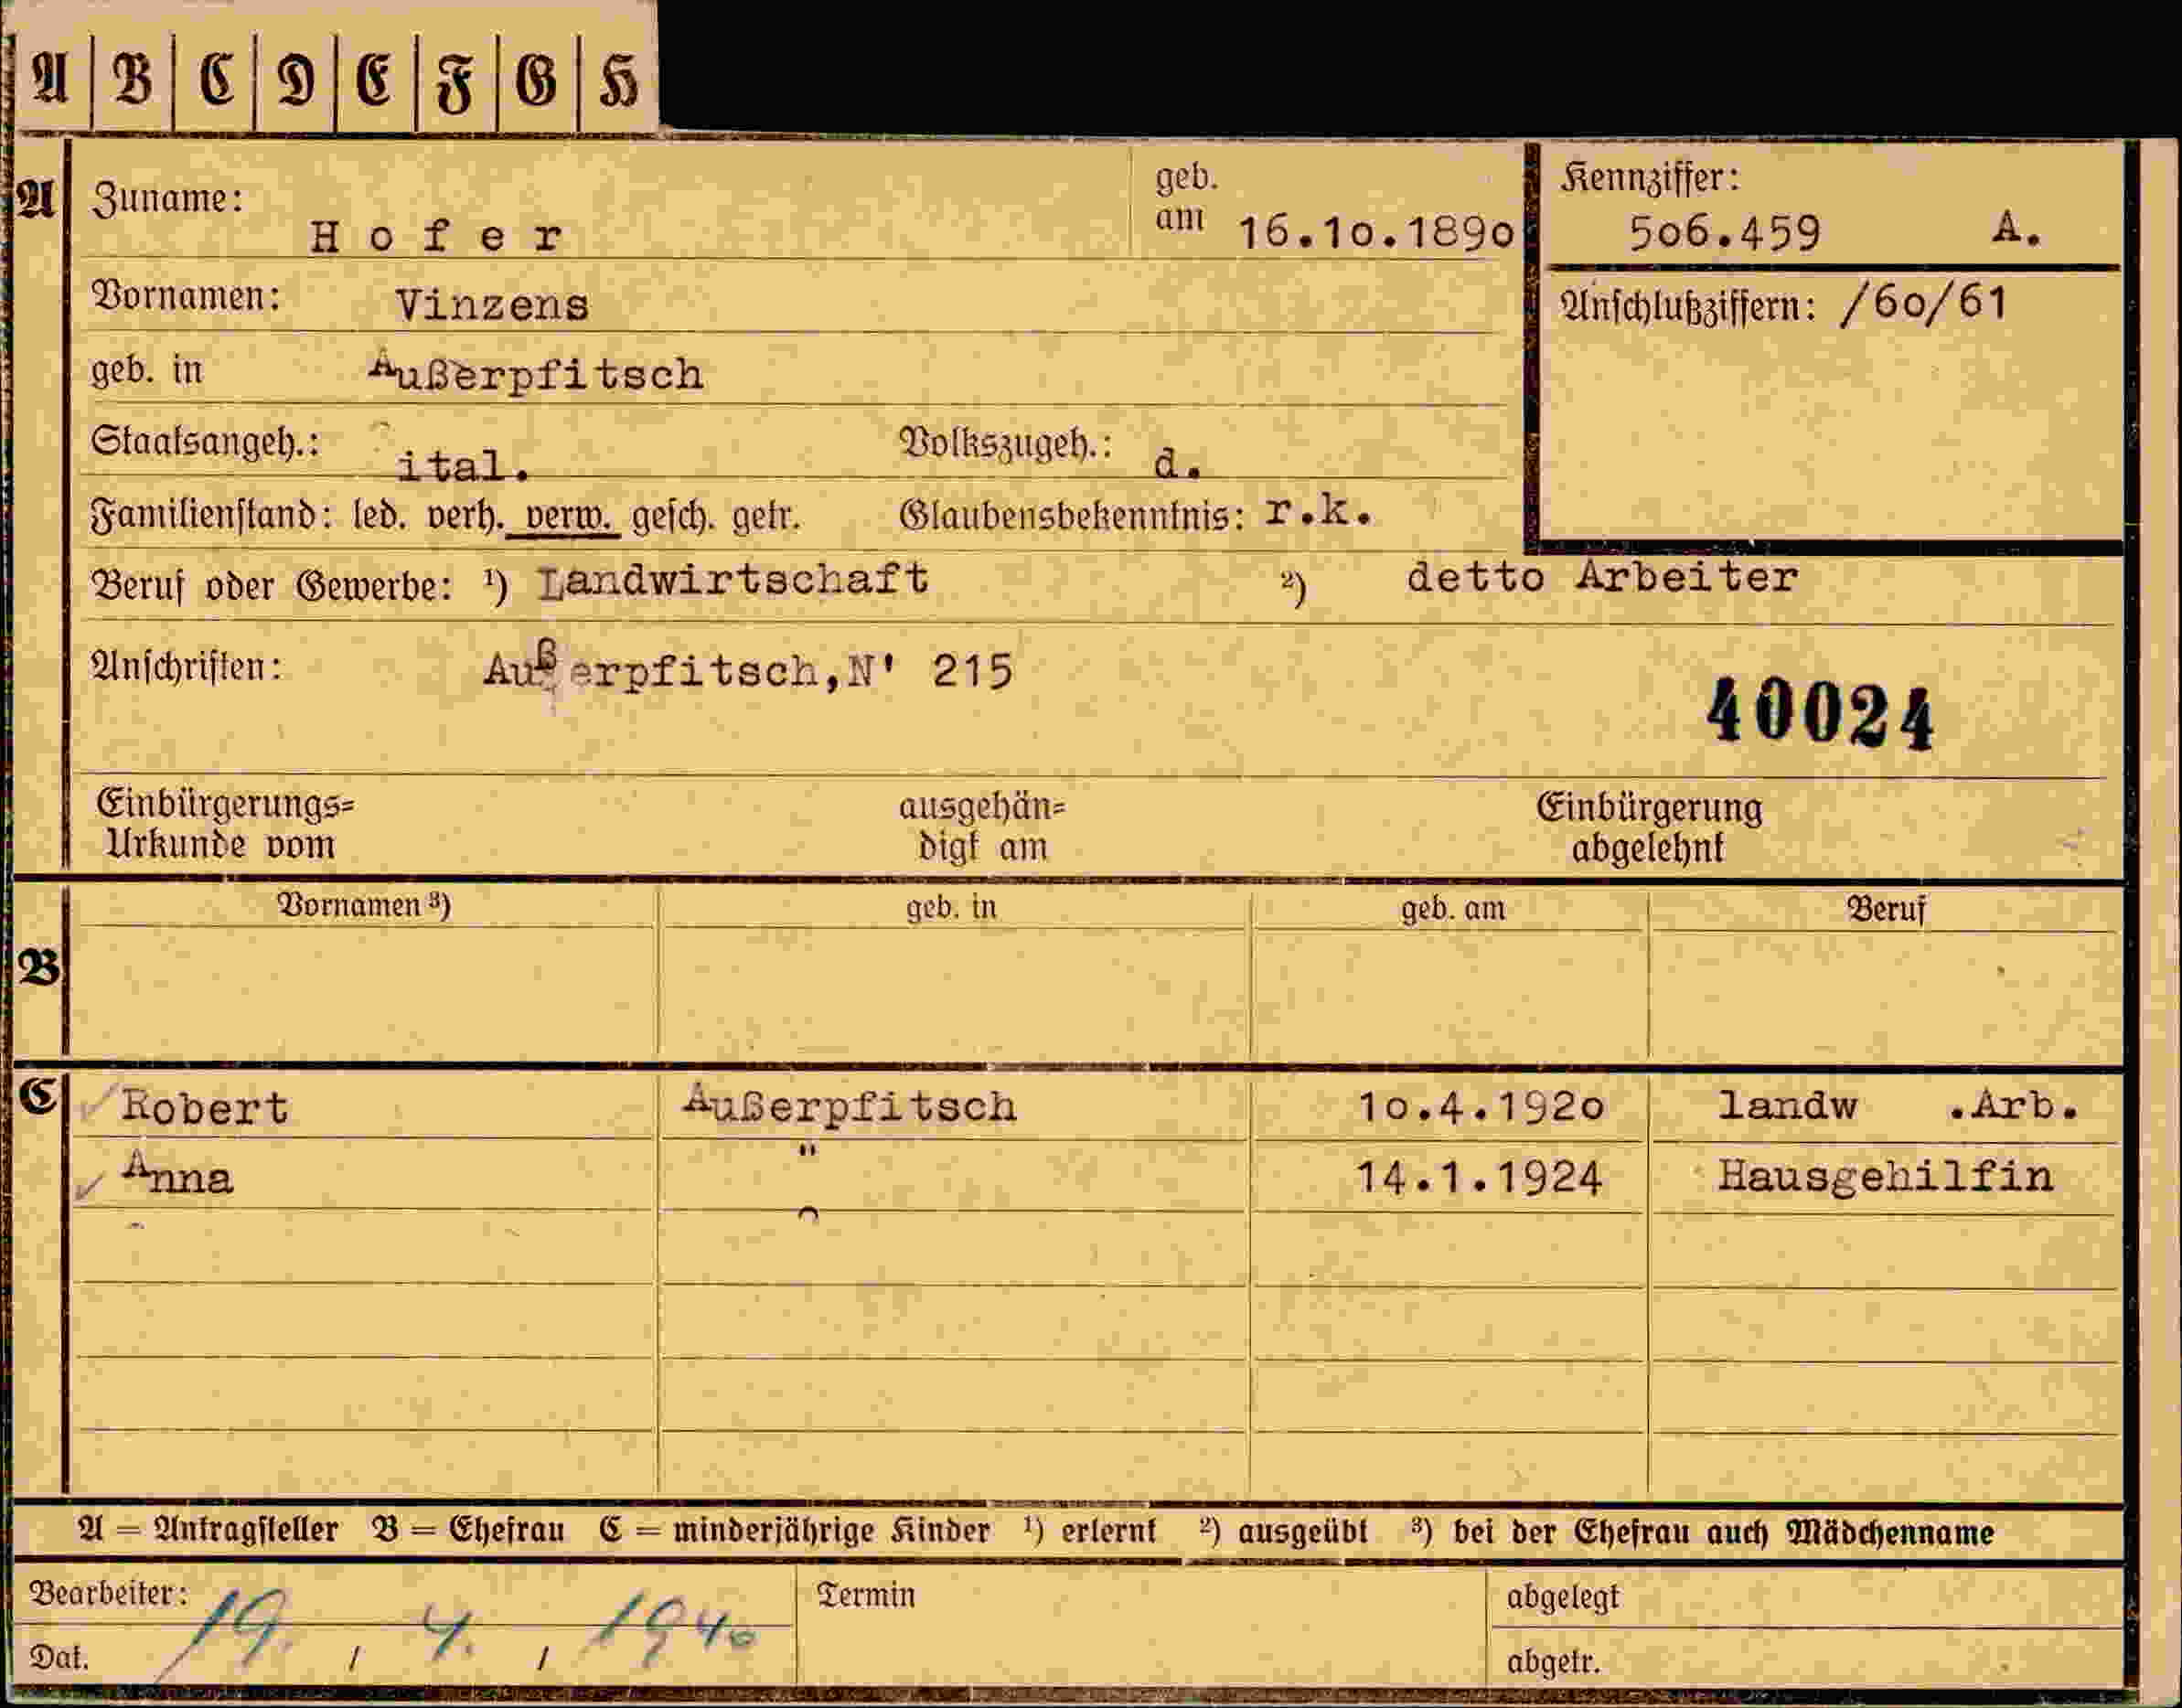 A B C D E F G H
A Zuname: Hofer geb. am 16.10.1890 Kennziffer: 506.459 A.
Vornamen: Vinzens Anschlußziffern: /60/61
geb. in Außerpfitsch
Staatsangeh.: ital. Volkszugeh.: d.
Familienstand: led. verh. verw. gesch. getr. Glaubensbekenntnis: r.k.
Beruf oder Gewerbe: ¹) Landwirtschaft ²) detto Arbeiter
Anschriften: Außerpfitsch,N' 215
40024
Einbürgerungs= ausgehän= Einbürgerung
Urkunde vom digt am abgelehnt
Vornamen ³) geb. in geb. am Beruf
B
C Robert Außerpfitsch 10.4.1920 landw .Arb.
Anna " 14.1.1924 Hausgehilfin
A = Antragsteller B = Ehefrau C = minderjährige Kinder ¹) erlernt ²) ausgeübt ³) bei der Ehefrau auch Mädchenname
Bearbeiter: Termin abgelegt
Dat. 19. / 4. / 1940 abgetr.